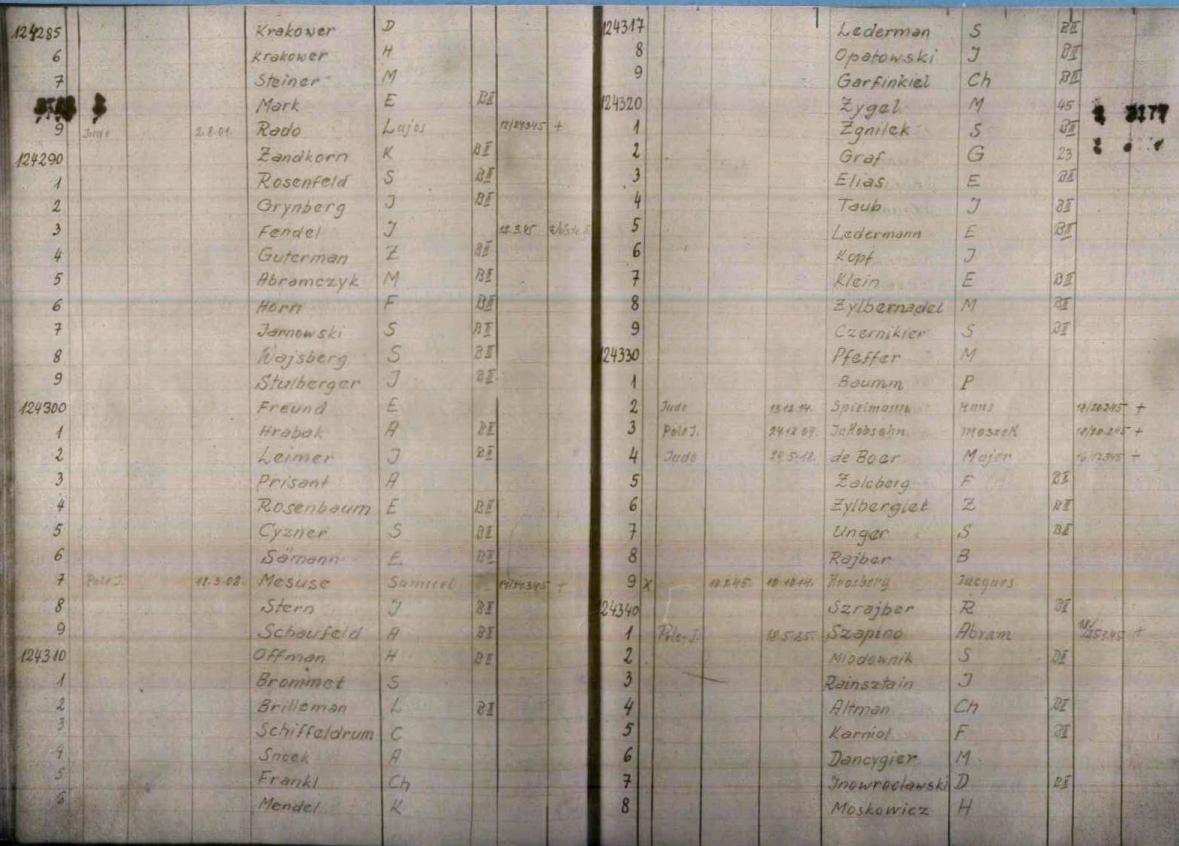 124285 Krakower D
6 Krakower H
7 Steiner M
Mark E BII
9 Jude 2.8.01. Rado Lajos 12/24345 +
124290 Zandkorn K BII
1 Rosenfeld S BII
2 Grynberg J BII
3 Fendel J 12.3.45
4 Guterman Z BII
5 Abramczyk M BII
6 Horn F BII
7 Jarnowski S BII
8 Wajsberg S BII
9 Stulberger J BII
124300 Freund E
1 Hrabak A BII
2 Leimer J BII
3 Prisant A
4 Rosenbaum E BII
5 Cyzner S BII
6 Sämann E BII
7 Pole J. 12.3.08. Mesuse Samuel +
8 Stern J BII
9 Schaufeld A BII
124310 Offman H BII
1 Brommet S
2 Brilleman L BII
3 Schiffeldrum C
4 Snoek A
5 Frankl Ch
6 Mendel K
124317 Lederman S BII
8 Opatowski J BII
9 Garfinkiel Ch BII
124320 Zygel M 45
1 Zgnilek S BII
2 Graf G 23
3 Elias E BII
4 Taub J BII
5 Ledermann E BII
6 Kopf J
7 Klein E BII
8 Zylbernadel M BII
9 Czernikier S BII
124330 Pfeffer M
1 Baumm P
2 Jude 13.12.14. Spielmann Hans +
3 Pole J. 24.12.09. Jakobsohn Moszek +
4 Jude de Boer Majer +
5 Zalcberg F BII
6 Zylberglet Z BII
7 Unger S BII
8 Rajber B
9 X 10.10.14. Jacques
24340 Szrajber R BII
1 Pole-J. 18.5.25. Szapino Abram +
2 Miodownik S BII
3 Rainsztain J
4 Altman Ch BII
5 Karniol F BII
6 Dancygier M
7 Jnowroclawski D BII
8 Moskowicz H